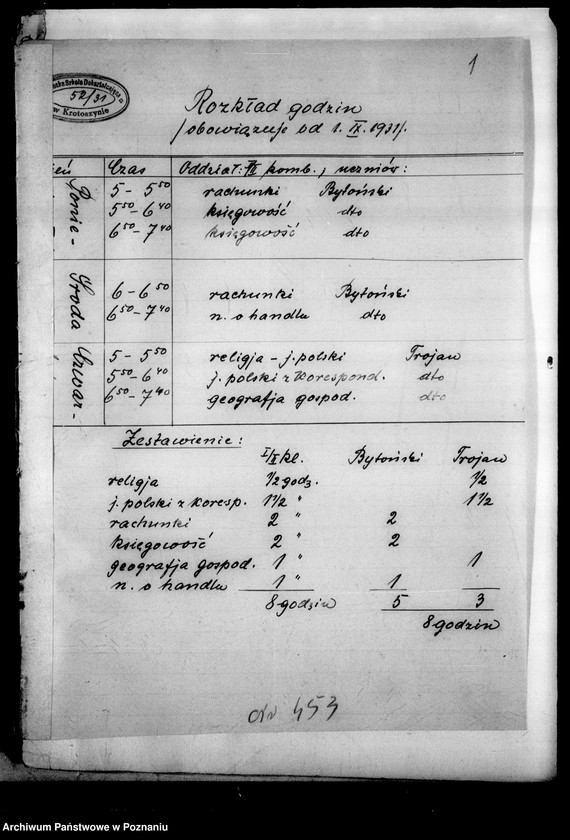 1
Szkoła Dokształcająca
52/31
w Krotoszynie
Rozkład godzin
/obowiązuje od 1. IX. 1931/.
Czas Oddział: komb., uczniów:
Ponie-
5 - 5⁵⁰ rachunki Bytoński
5⁵⁰ - 6⁴⁰ księgowość dto
6⁵⁰ - 7⁴⁰ księgowość dto
Środa
6 - 6⁵⁰ rachunki Bytoński
6⁵⁰ - 7⁴⁰ n. o handlu dto
Czwar-
5 - 5⁵⁰ religja - j. polski Trojan
5⁵⁰ - 6⁴⁰ j. polski z korespond. dto
6⁵⁰ - 7⁴⁰ geografja gospod. dto
Zestawienie:
I/II kl. Bytoński Trojan
religja 1/2 godz. 1/2
j. polski z koresp. 1 1/2 " 1 1/2
rachunki 2 " 2
księgowość 2 " 2
geografja gospod. 1 " 1
n. o handlu 1 " 1
8 godzin 5 3
8 godzin
453
Archiwum Państwowe w Poznaniu